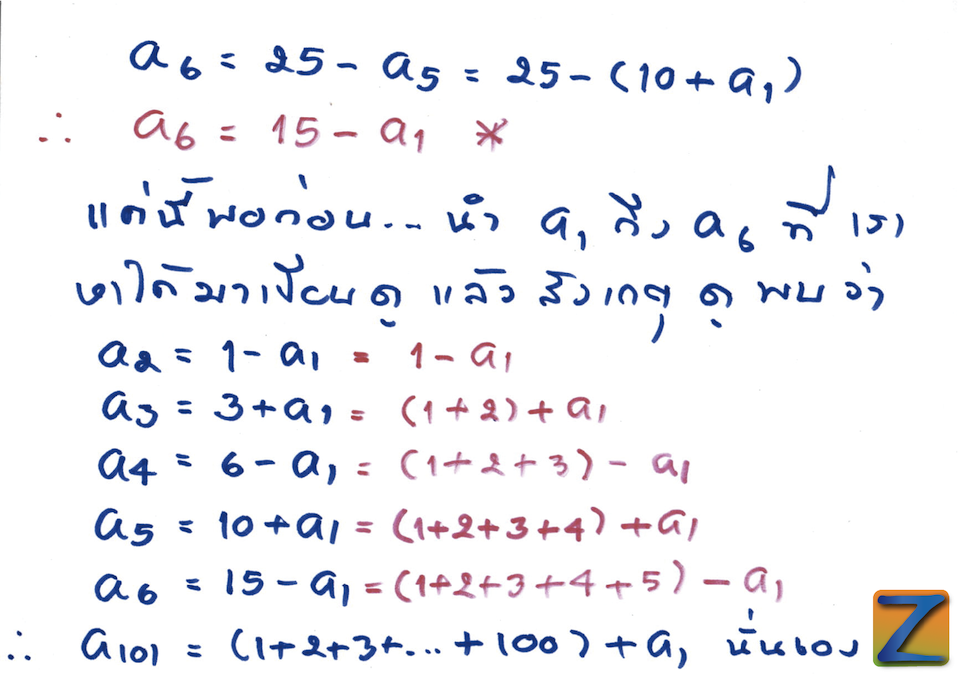 a₆ = 25 - a₅ = 25 - (10 + a₁)
∴ a₆ = 15 - a₁ *
แค่นี้พอก่อน... นำ a₁ ถึง a₆ ที่เรา
หาได้มาเขียนดู แล้วสังเกตุดู พบว่า
a₂ = 1 - a₁ = 1 - a₁
a₃ = 3 + a₁ = (1 + 2) + a₁
a₄ = 6 - a₁ = (1 + 2 + 3) - a₁
a₅ = 10 + a₁ = (1+2+3+4) + a₁
a₆ = 15 - a₁ = (1+2+3+4+5) - a₁
∴ a₁₀₁ = (1+2+3+...+100) + a₁ นั่นเอง
Z